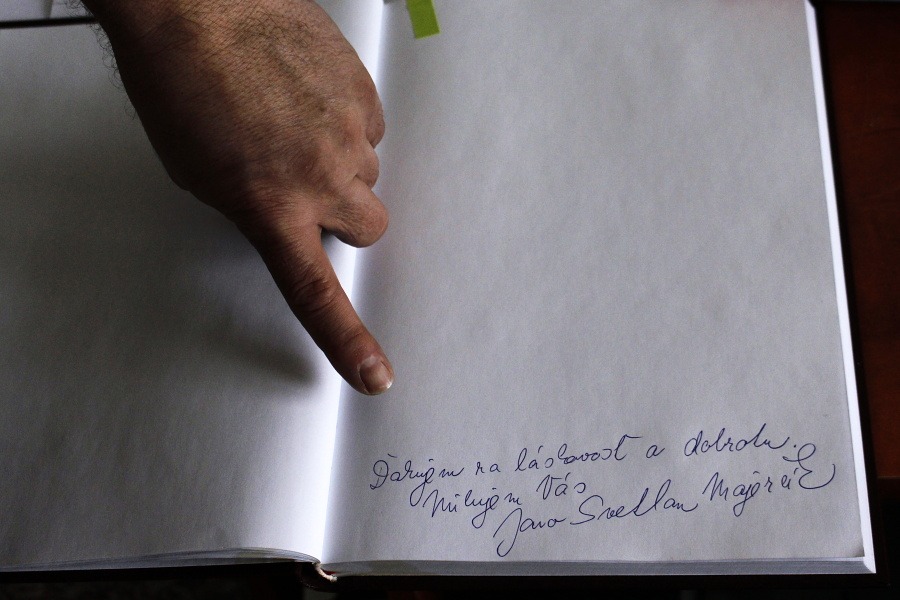 Ďakujem za láskavosť a dobrotu.
Milujem Vás
Jano Svetlan Majerčík